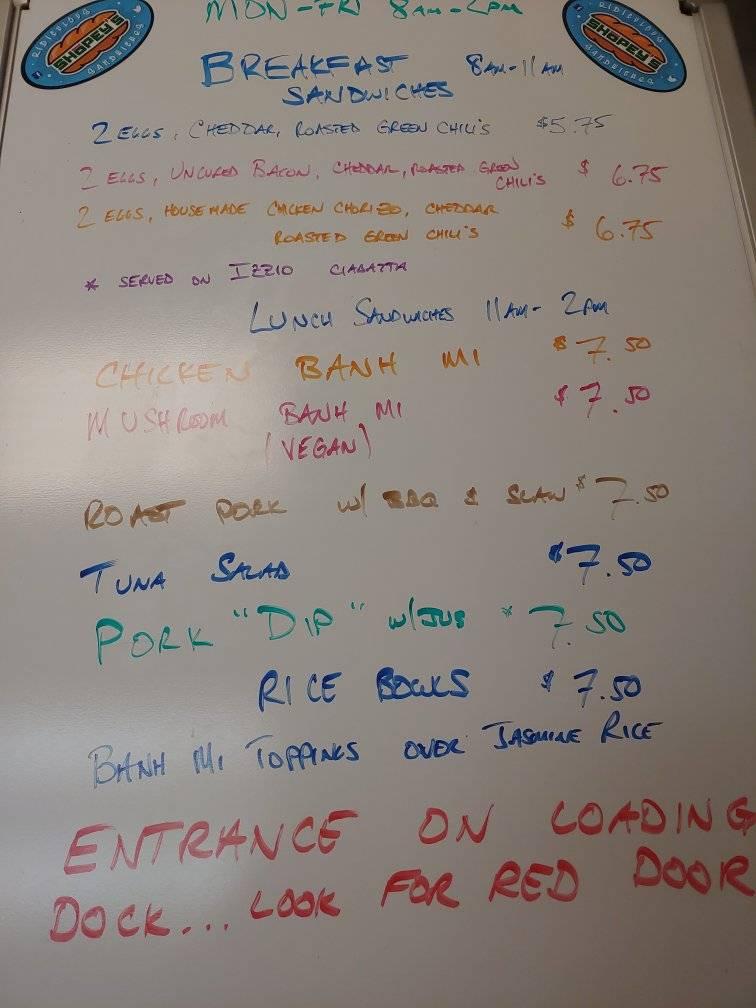 MON-FRI 8AM-2PM
RIDICULOUS
SHOPEY'S
SANDWICHES
RIDICULOUS
SHOPEY'S
SANDWICHES
BREAKFAST 8AM-11AM
SANDWICHES
2 EGGS, CHEDDAR, ROASTED GREEN CHILI'S $5.75
2 EGGS, UNCURED BACON, CHEDDAR, ROASTED GREEN
CHILI'S $ 6.75
2 EGGS, HOUSEMADE CHICKEN CHORIZO, CHEDDAR
ROASTED GREEN CHILI'S $ 6.75
* SERVED ON IZZIO CIABATTA
LUNCH SANDWICHES 11AM- 2PM
CHICKEN BANH MI $7.50
MUSHROOM BANH MI $7.50
(VEGAN)
ROAST PORK W/ BBQ & SLAW $7.50
TUNA SALAD $7.50
PORK "DIP" W/JUS $7.50
RICE BOWLS $7.50
BANH MI TOPPINGS OVER JASMINE RICE
ENTRANCE ON LOADING
DOCK... LOOK FOR RED DOOR